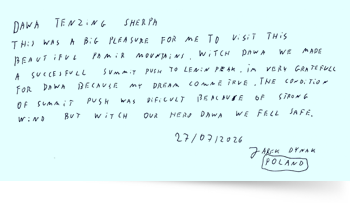 DAWA TENZING SHERPA
THIS WAS A BIG PLEASURE FOR ME TO VISIT THIS
BEAUTIFUL PAMIR MOUNTAINS. WITCH DAWA WE MADE
A SUCCESFULL SUMMIT PUSH TO LENIN PEAK. IM VERY GRATEFULL
FOR DAWA BECAUSE MY DREAM COMME TRUE. THE CONDITION
OF SUMMIT PUSH WAS DIFICULT BEACAUSE OF STRONG
WIND BUT WITCH OUR HERO DAWA WE FELL SAFE.
27/07/2026
JAREK DYMAK
POLAND